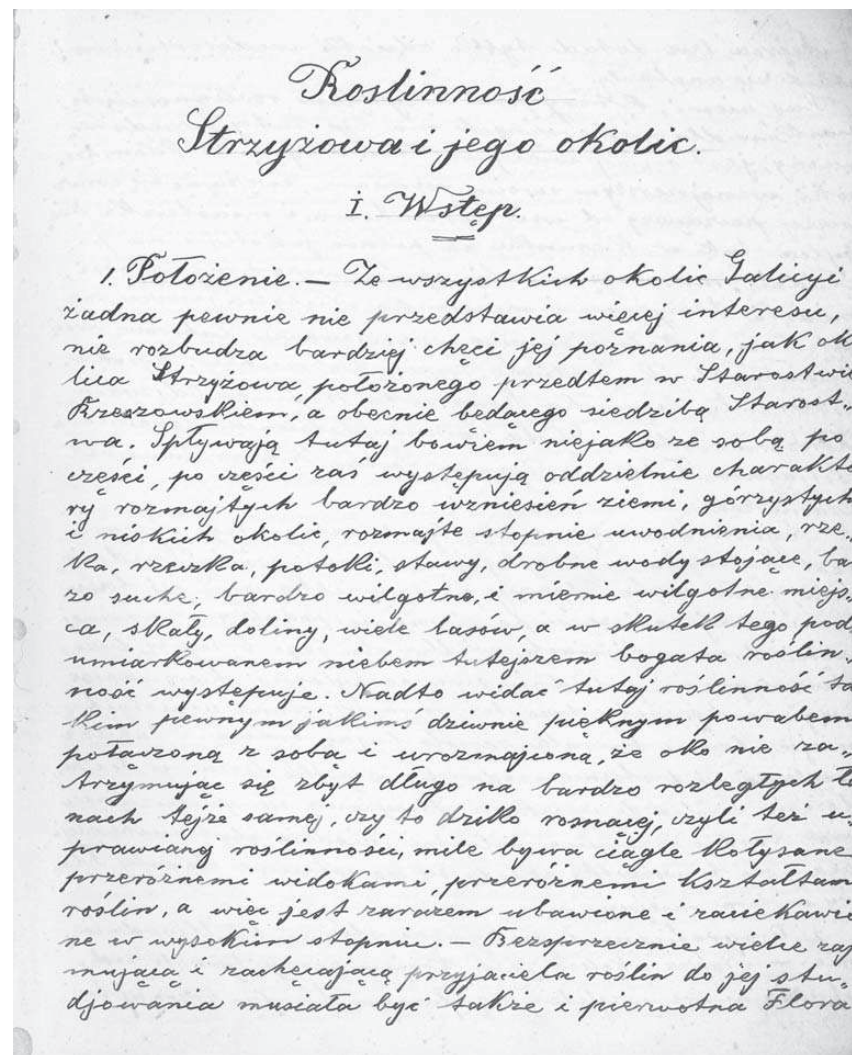 Roslinność
Strzyżowa i jego okolic.
I. Wstęp.
1. Położenie. — Ze wszystkich okolic Galicyi
żadna pewnie nie przedstawia więcej interesu,
nie rozbudza bardziej chęci jej poznania, jak ok
lica Strzyżowa, położonego przedtem w Starostwie
Rzeszowskiem, a obecnie będącego siedzibą Starost„
wa. Spływają tutaj bowiem niejako ze sobą po
części, po części zaś występują oddzielnie charakte
ry rozmajtych bardzo wzniesień ziemi, górzystych
i niskich okolic, rozmajte stopnie uwodnienia, rze„
ka, rzeczka, potoki, stawy, drobne wody stojące, ba
zo suche, bardzo wilgotne, i miernie wilgotne miejs„
ca, skały, doliny, wiele lasów, a w skutek tego pod
umiarkowanem niebem tutejszem bogata roślin„
ność występuje. Nadto widać tutaj roślinność ta
kim pewnym jakimś dziwnie pięknym powabem
połączoną z sobą i urozmajconą, że oko nie za„
trzymując się zbyt długo na bardzo rozległych ła
nach tejże samej, czy to dziko rosnącej, czyli też u„
prawianej roślinności, mile bywa ciągle kołysane
przeróżnemi widokami, przeróżnemi kształtam
roślin, a więc jest zarazem ubawione i zaciekawio
ne w wysokim stopniu. — Bezsprzecznie wielce zaj
mującą i zachęcającą przyjaciela roślin do jej stu„
djowania musiała być także i pierwotna Flora